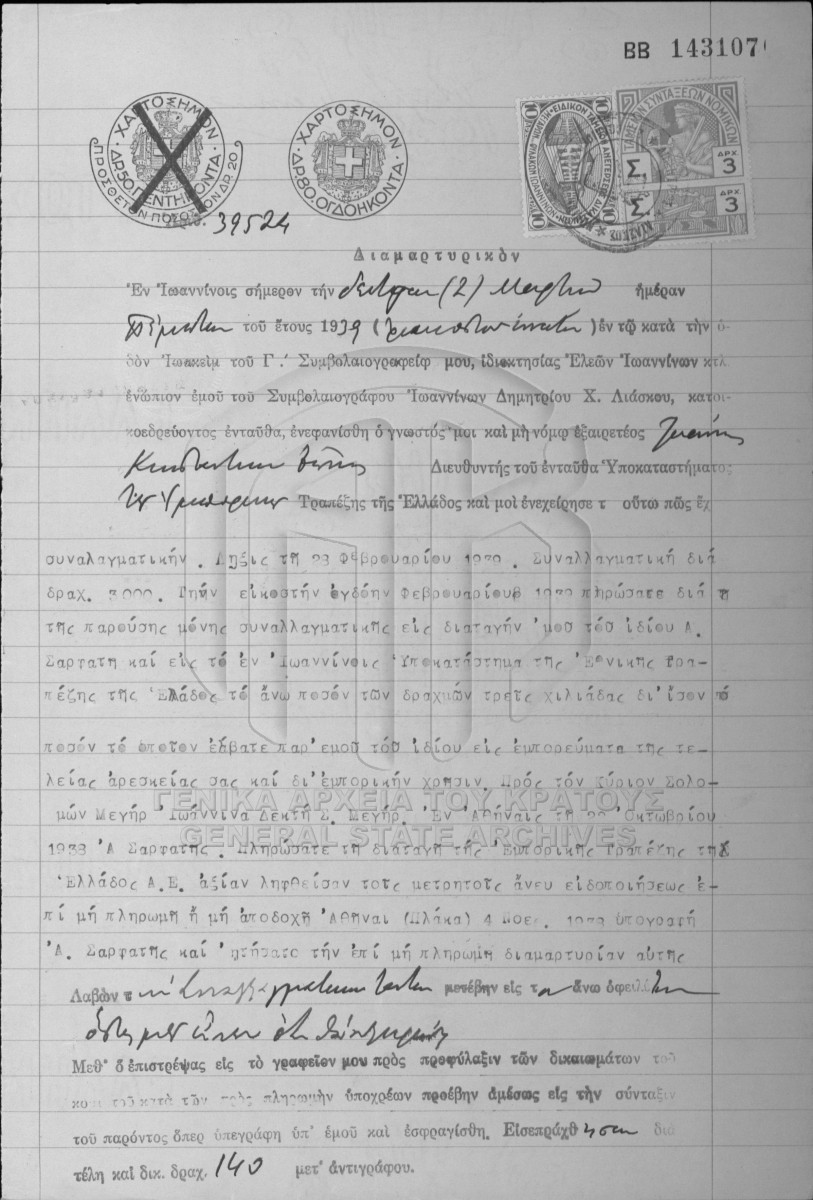 ΒΒ 143107
ΧΑΡΤΟΣΗΜΟΝ
ΔΡ. 50 ΠΕΝΤΗΚΟΝΤΑ
ΠΡΟΣΘΕΤΟΝ ΠΟΣΟΣΤΟΝ ΔΡ. 20
ΧΑΡΤΟΣΗΜΟΝ
ΔΡ. 80. ΟΓΔΟΗΚΟΝΤΑ
ΤΑΜΕΙΟΝ ΣΥΝΤΑΞΕΩΝ ΝΟΜΙΚΩΝ
Σ. ΔΡΧ 3
Σ. ΔΡΧ 3
39524
Διαμαρτυρικὸν
Ἐν Ἰωαννίνοις σήμερον τὴν δευτέραν (2) Μαρτίου ἡμέραν
Πέμπτην τοῦ ἔτους 1939 ( ) ἐν τῷ κατὰ τὴν ὁ-
δὸν Ἰωακεὶμ τοῦ Γ.΄ Συμβολαιογραφείῳ μου, ἰδιοκτησίας Ἐλεῶν Ἰωαννίνων κτλ.
ἐνώπιον ἐμοῦ τοῦ Συμβολαιογράφου Ἰωαννίνων Δημητρίου Χ. Λιάσκου, κατοι-
κοεδρεύοντος ἐνταῦθα, ἐνεφανίσθη ὁ γνωστός μοι καὶ μὴ νόμῳ ἐξαιρετέος Ἰωάννης
Κωνσταντίνου Διευθυντὴς τοῦ ἐνταῦθα Ὑποκαταστήματος
τῆς Ἐμπορικῆς Τραπέζης τῆς Ἑλλάδος καὶ μοὶ ἐνεχείρησε τ οὕτω πῶς ἔχ
συναλαγματικήν . Ληξις τῆ 28 Φεβρουαρίου 1939. Συναλλαγματική διά
δραχ. 3000. Τήν εἰκοστήν ὀγδόην Φεβρουαρίου 1939 πληρώσατε διά
τῆς παρούσης μόνης συναλλαγματικῆς εἰς διαταγήν ἐμοῦ τοῦ ἰδίου Α.
Σαρφατῆ καί εἰς τό ἐν Ἰωαννίνοις Ὑποκατάστημα τῆς Ἐθνικῆς Τρα-
πέζης τῆς Ἑλλάδος τό ἄνω ποσόν τῶν δραχμῶν τρεῖς χιλιάδας δι'ἴσον
ποσόν τό ὁποῖον ἐλάβατε παρ'ἐμοῦ τοῦ ἰδίου εἰς ἐμπορεύματα τῆς τε-
λείας ἀρεσκείας σας καί δι'ἐμπορικήν χρῆσιν. Πρός τόν Κύριον Σολο-
μών Μεγήρ Ἰωάννινα Δεκτή Σ. Μεγήρ. Ἐν Ἀθήναις τῆ Ὀκτωβρίου
1938 Α Σαρφατῆς . Πληρώσατε τῆ διαταγῆ τῆς Ἐμπορικῆς Τραπέζης τῆς
Ἑλλάδος Α.Ε. ἀξίαν ληφθεῖσαν τοῖς μετρητοῖς ἄνευ εἰδοποιήσεως ἐ-
πί μή πληρωμῆ ἤ μή ἀποδοχῆ Ἀθῆναι (Πλάκα) 4 Νοεμ. 1938 ὑπογραφή
Α. Σαρφατῆς καί ἐζήτησατο τήν ἐπί μή πληρωμῆ διαμαρτυρίαν αὐτῆς
Λαβὼν τὴν συναλλαγματικὴν ταύτην μετέβην εἰς τὸν ἄνω ὀφειλέτην
ὅστις μοι εἶπεν ὅτι
Μεθ' ὃ ἐπιστρέψας εἰς τὸ γραφεῖον μου πρὸς προφύλαξιν τῶν δικαιωμάτων τοῦ
κομ τοῦ κατὰ τῶν πρὸς πληρωμὴν ὑποχρέων προέβην ἀμέσως εἰς τὴν σύνταξιν
τοῦ παρόντος ὅπερ ὑπεγράφη ὑπ' ἐμοῦ καὶ ἐσφραγίσθη. Εἰσεπράχθησαν διὰ
τέλη καὶ δικ. δραχ. 140 μετ' ἀντιγράφου.
ΓΕΝΙΚΑ ΑΡΧΕΙΑ ΤΟΥ ΚΡΑΤΟΥΣ
GENERAL STATE ARCHIVES